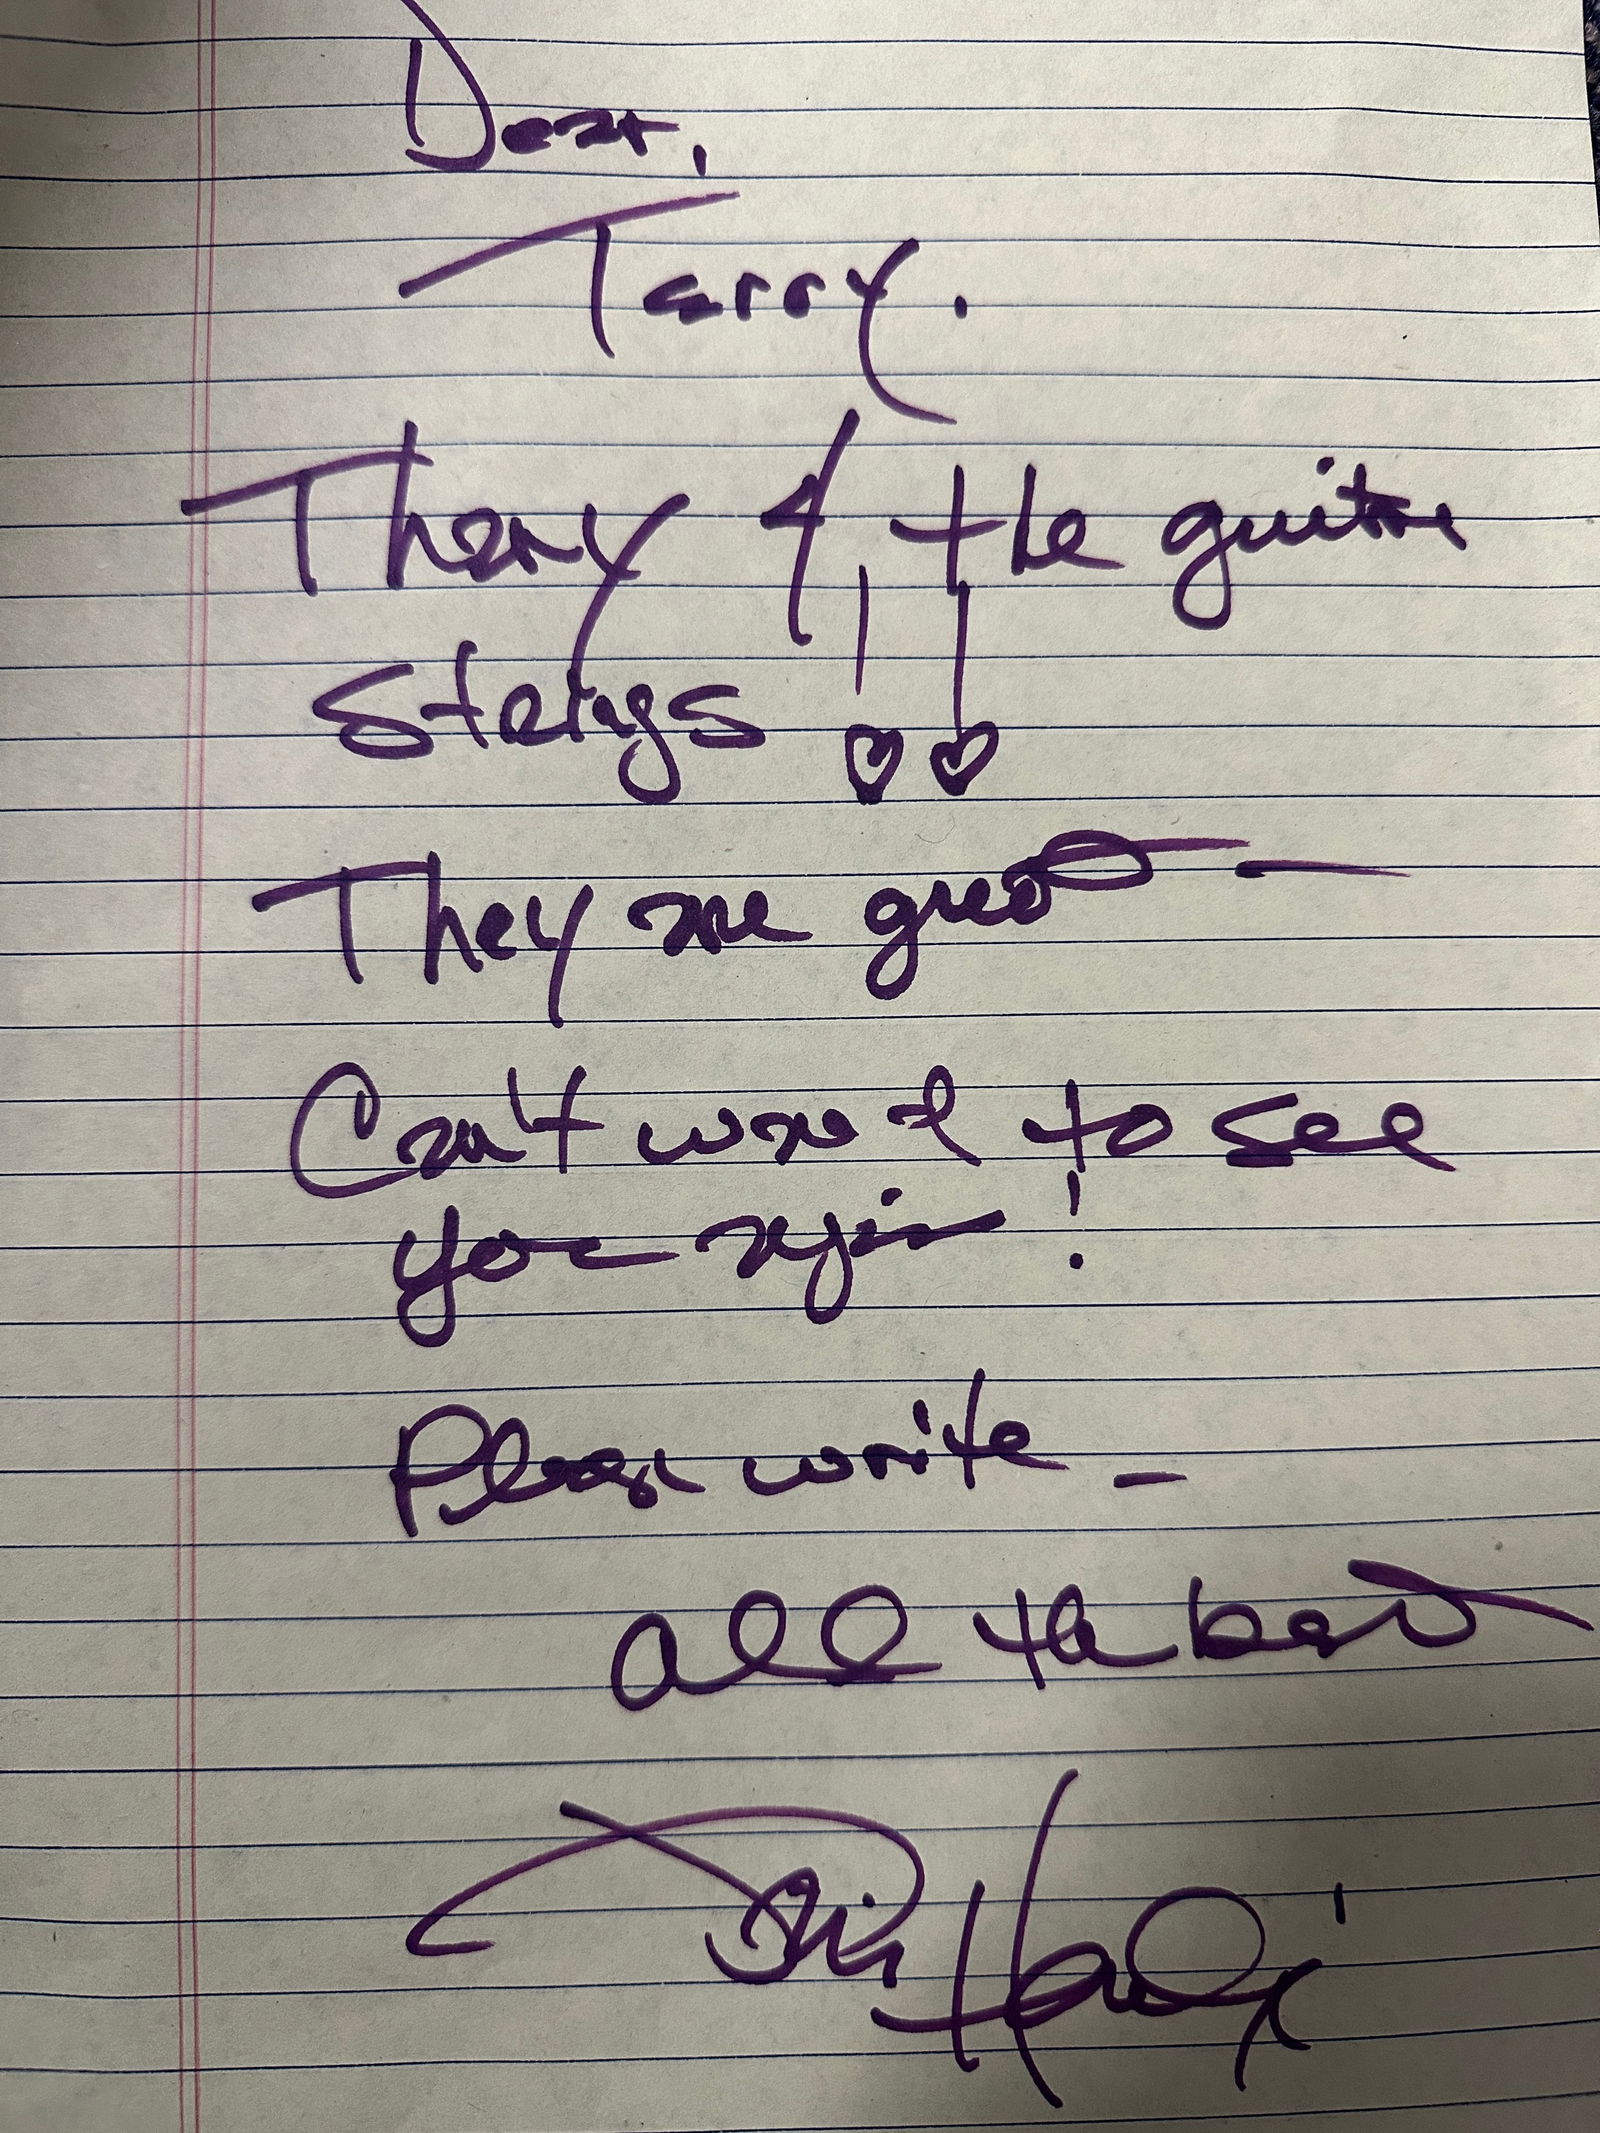 Dear,
Terry.
Thanx 4 the guitar
strings !!
They are great —
Can't wait to see
you again!
Please write –
All the best
Jimi Hendrix